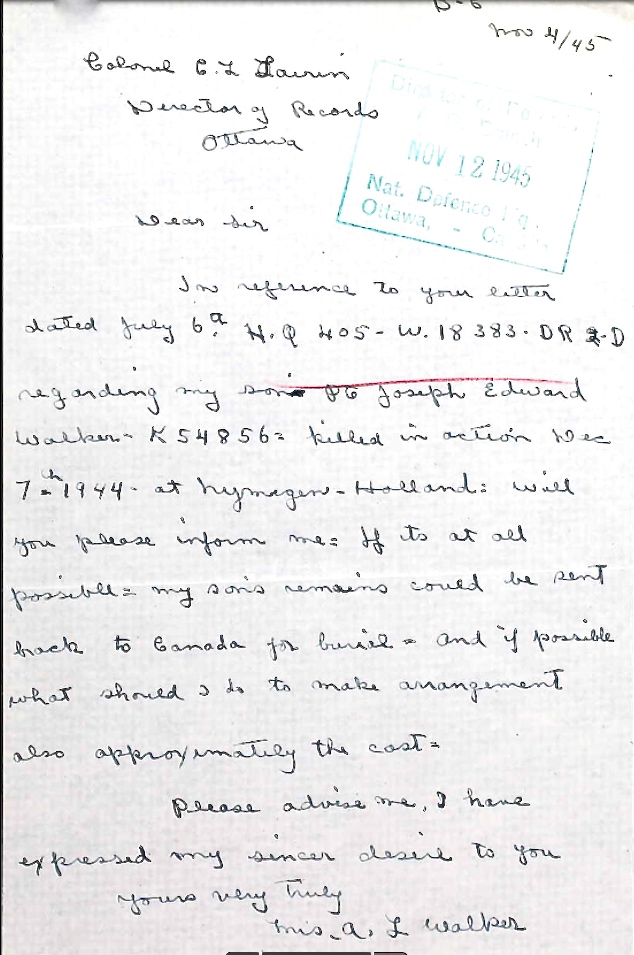 Nov 4/45
Colonel C. L Laurin
Director of Records
Ottawa
Director of
NOV 12 1945
Nat. Defence
Ottawa, -
Dear Sir
In reference to your letter
dated July 6th. H.Q 405-W. 18383. DR D
regarding my son Pte Joseph Edward
Walker- K 54856= killed in action Dec
7th 1944. at Nymegen-Holland: will
you please inform me= If its at all
possible= my sons remains could be sent
back to Canada for burial= and if possible
what should I do to make arrangement
also approximately the cost=
Please advise me, I have
expressed my sincer desire to you
yours very Truly
Mrs. A. L Walker